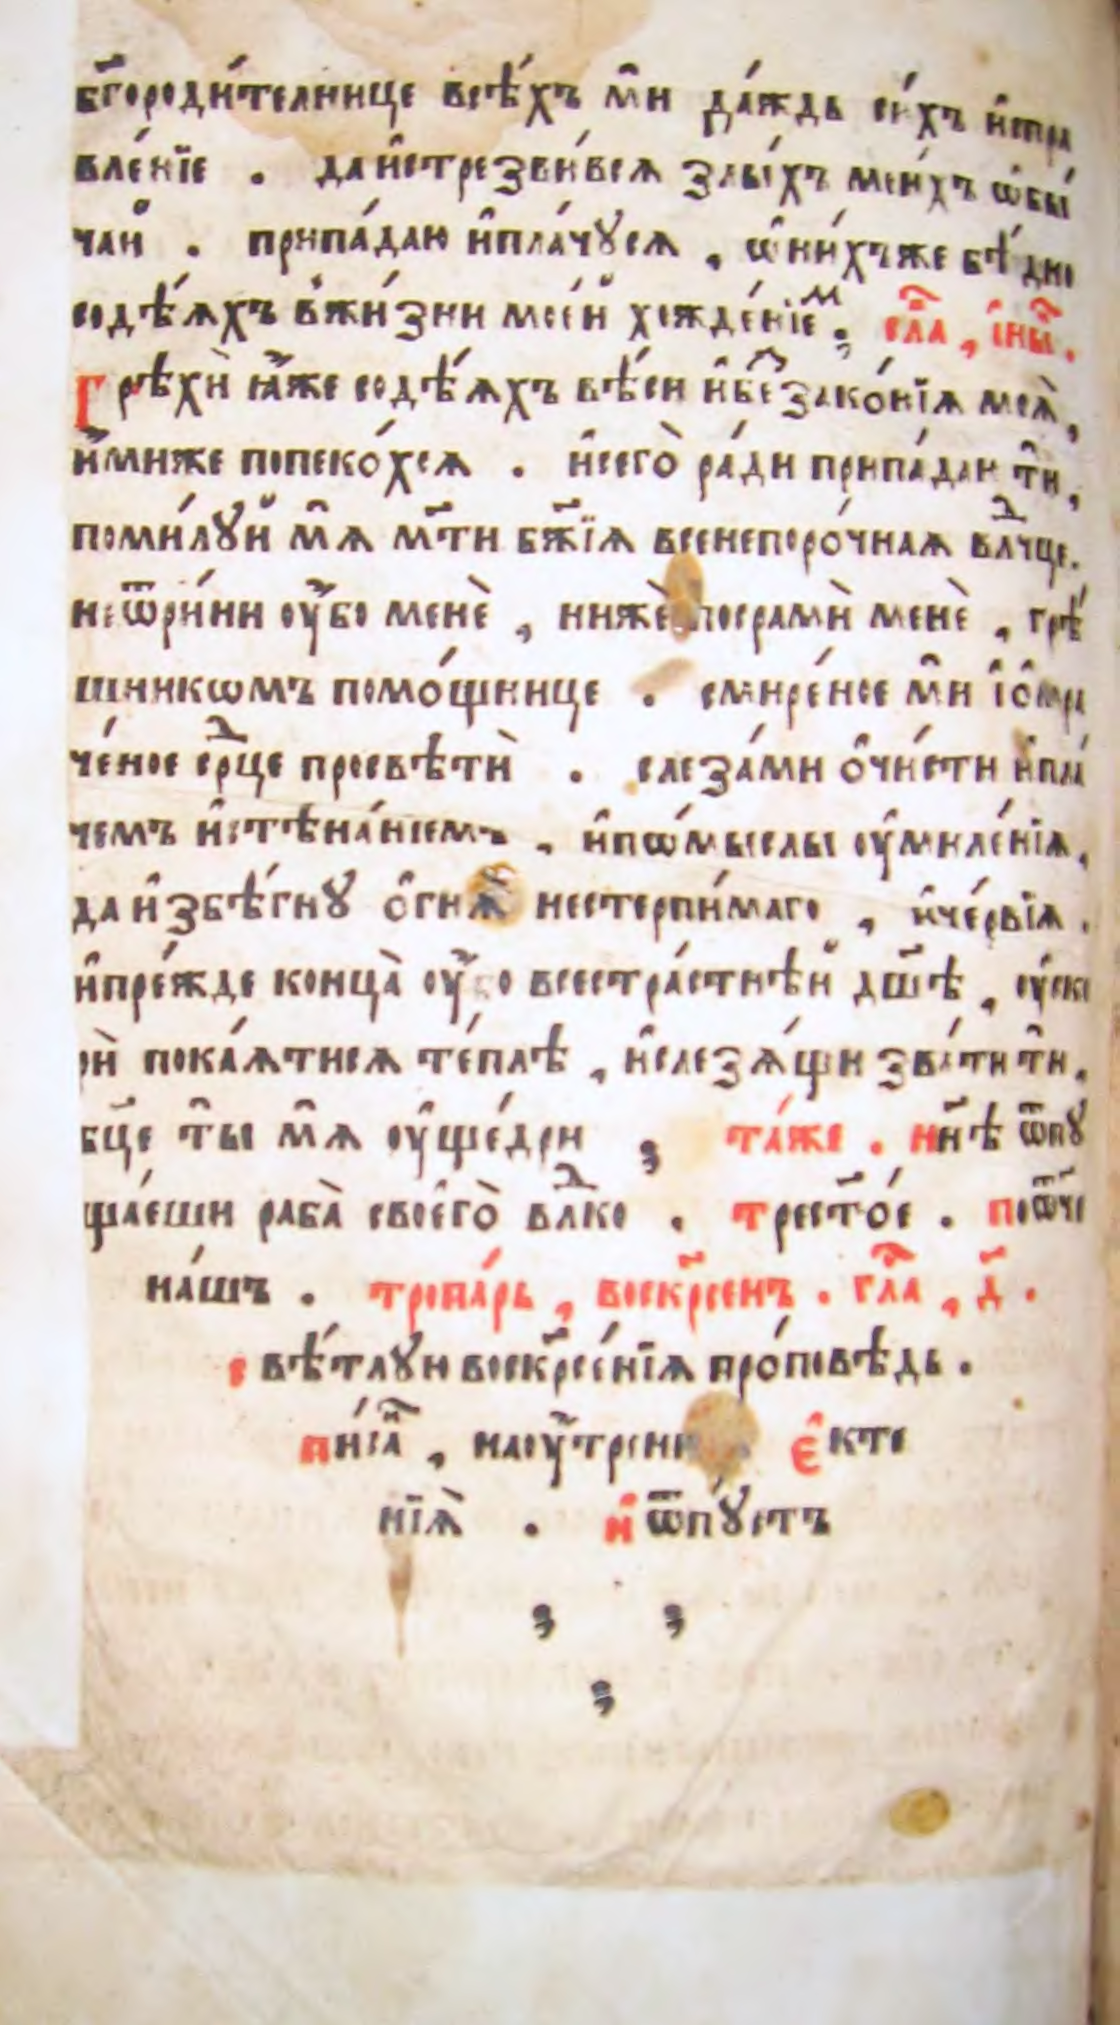 бг҃ороди́телнице всѣ́хъ мѝ да́ждь си́хъ и҆спра
вле́нїе . да и҆стрезви́вся злы́хъ мои́хъ ѡ҆бы́
чаи҆ . припа́даю и҆пла́чꙋся , ѡ҆ни́хъже бѣ́дно
содѣ́яхъ вжи́зни мое́й хожде́нїемъ . сла҃ , и҆ны҃ .
Грѣхѝ ꙗ҆́же содѣ́яхъ всѣ́ и҆беззако́нїя моѧ̀ ,
и҆́миже попеко́хся . и҆сего̀ ра́ди припа́даи тѝ ,
поми́лꙋй мѧ̀ мт҃и бж҃їя всенепоро́чная влчⷣце .
неѿри́ни ᲂу҆́бо менѐ , ниже посрамѝ менѐ , грѣ́
шникѡмъ помо́щнице . смире́ное мѝ і҆ѡ҆мра
че́ное срⷣце просвѣтѝ . слеза́ми ѻ҆чи́сти и҆пла́
чемъ и҆стѣна́нїемъ , и҆пѡ́мыслы ᲂу҆миле́нїя ,
да и҆збѣ́гнꙋ ѻ҆гня̀ нестерпи́маго , и҆че́рвїя .
и҆пре́жде конца̀ ᲂу҆́бо всестра́стнѣй дш҃ѣ , ᲂу҆ско
рѝ пока́ятися те́плѣ , и҆слезя́щи зва́ти тѝ ,
бц҃е ты̀ мѧ̀ ᲂу҆ще́дри ; та́же . нн҃ѣ ѿпꙋ
ща́еши раба̀ своего̀ влⷣко . трест҃о́е . поѿ҃че
на́шъ . тропа́рь , воскр҃сенъ . гла҃ , д҃ .
свѣ́тлꙋи воскр҃се́нїя про́повѣдь .
пи́са҃ , наᲂу҆́трени . є҆кте
нїѧ̀ . и҆ ѿпꙋ́стъ